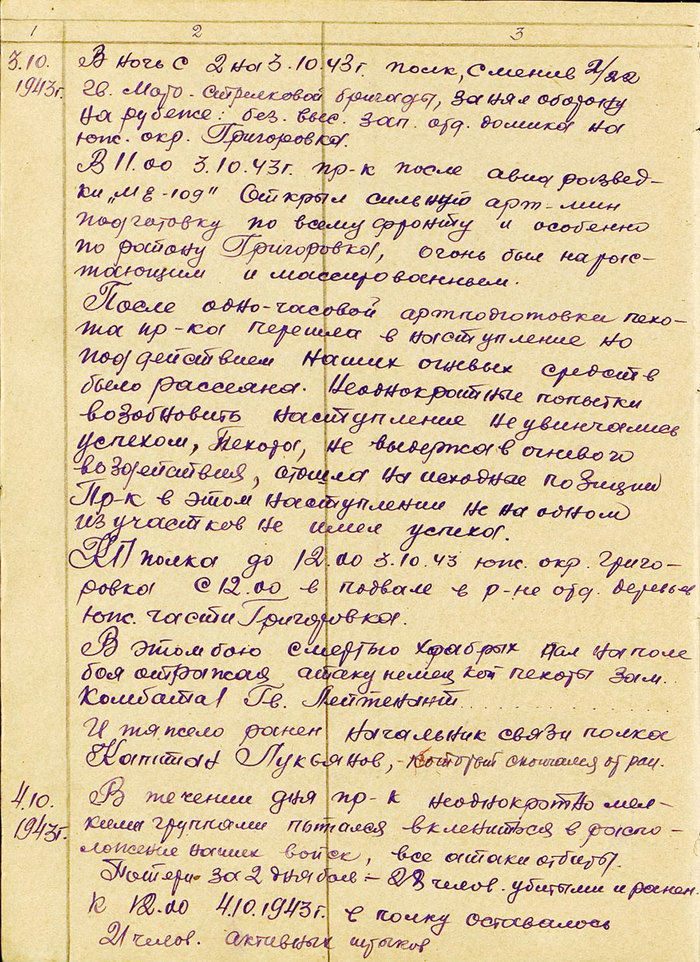 1 2 3
3.10.1943г. В ночь с 2 на 3.10.43г. полк, сменив
гв. Мото-стрелковой бригады, занял оборону
на рубеже: без. выс. зап. отд. домика на
юж. окр. Григоровка.
В 11.00 3.10.43г. пр-к после авиаразвед-
ки „МЕ-109" открыл сильную арт-мин
подготовку по всему фронту и особенно
по району Григоровка, огонь был нарас-
тающим и массированным.
После одно-часовой артподготовки пехо-
та пр-ка перешла в наступление но
под действием наших огневых средств
было рассеяна. Неоднократные попытки
возобновить наступление не увинчались
успехом, Пехота, не выдержав огневого
воздействия, отошла на исходные позиции
Пр-к в этом наступлении не на одном
из участков не имел успеха.
КП полка до 12.00 3.10.43 юж. окр. Григо-
ровка С 12.00 в подвале в р-не отд. деревьев
юж. части Григоровка.
В этом бою смертью храбрых пал на поле
боя отражая атаку немецкой пехоты зам.
Комбата Гв. Лейтенант
И тяжело ранен начальник связи полка
Капитан Лукьянов, - который скончался от ран.
4.10.1943г. В течении дня пр-к неоднократно мел-
кими группами пытался вклениться в распо-
ложение наших войск, все атаки отбиты.
Потери за 2 дня боя - челов. убитыми и ранен.
К 12.00 4.10.1943г. в полку оставалось
21 челов. активных штыков